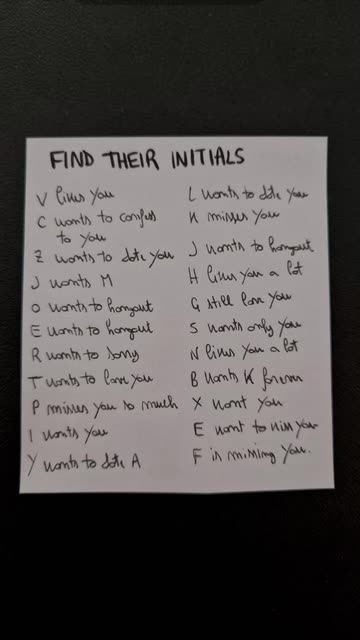 FIND THEIR INITIALS
V likes you
C wants to confess
to you
Z wants to date you
J wants M
O wants to hangout
E wants to hangout
R wants to sorry
T wants to love you
P misses you so much
I wants you
Y wants to date A
L wants to date you
K misses you
J wants to hangout
H likes you a lot
G still love you
S wants only you
N likes you a lot
B wants K forever
X want you
E want to kiss you
F is missing you.